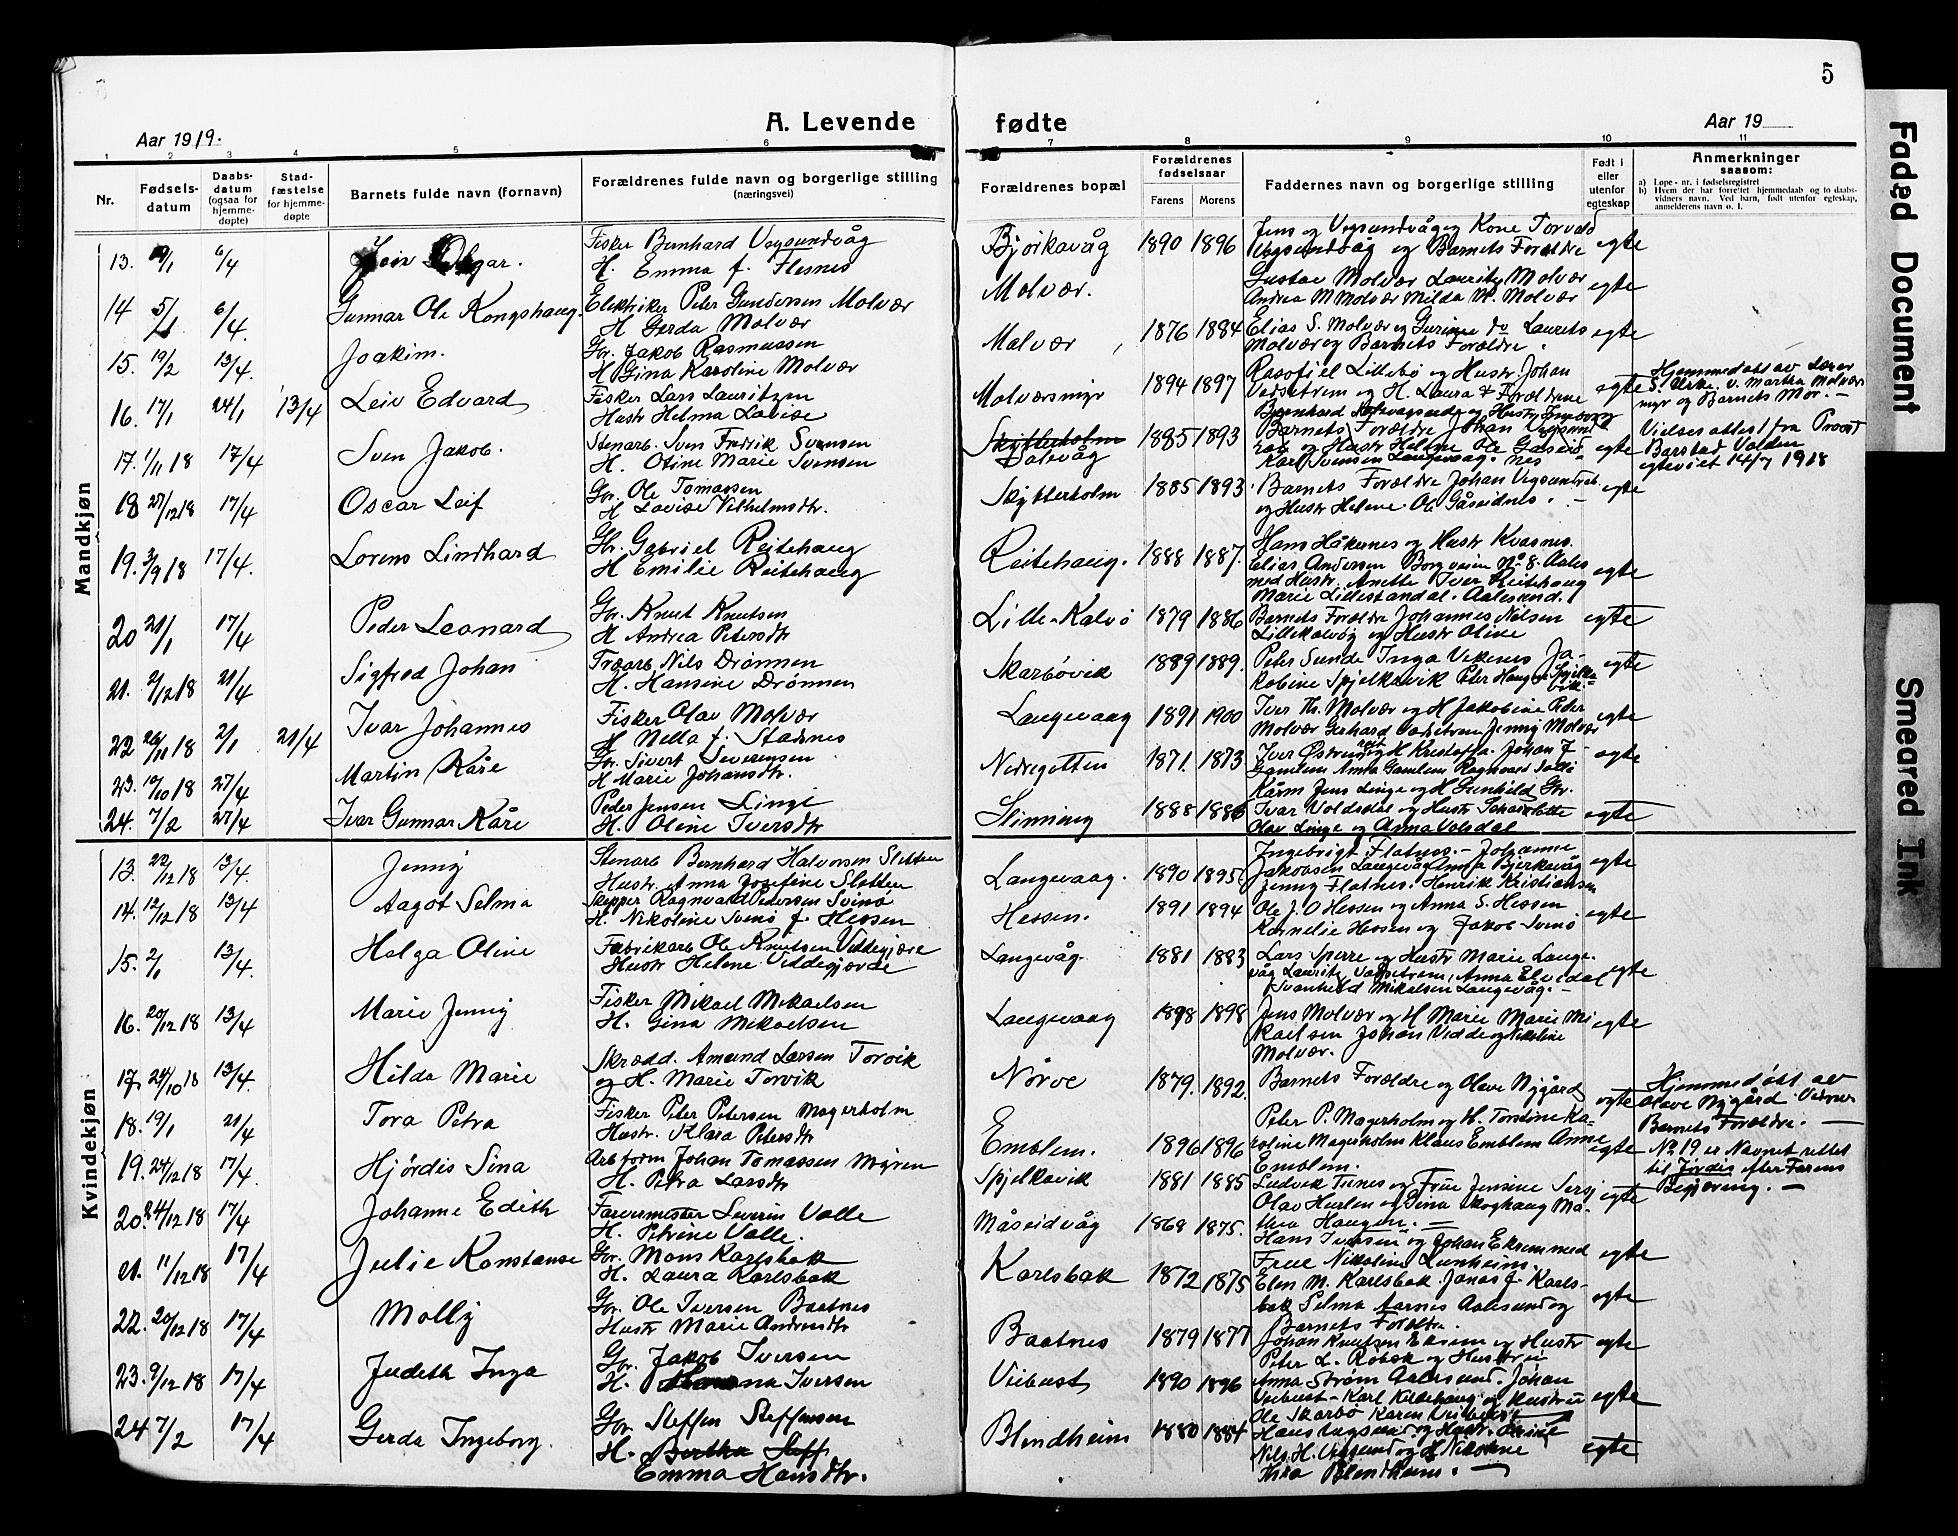 5
A. Levende fødte
Aar 1919.
Aar 19
1 2 3 4 5 6 7 8 9 10 11
Nr.
Fødsels-datum
Daabs-datum (ogsaa for hjemme-døpte)
Stad-fæstelse for hjemme-døpte
Barnets fulde navn (fornavn)
Forældrenes fulde navn og borgerlige stilling (næringsvei)
Forældrenes bopæl
Forældrenes fødselsaar
Farens
Morens
Faddernes navn og borgerlige stilling
Født i eller utenfor egteskap
Anmerkninger saasom:
a) Løpe-nr. i fødselsregistret
b) Hvem der har forrettet hjemmedaab og to daabs-vidners navn. Ved barn, født utenfor egteskap, anmelderens navn o. l.
Mandkjøn
13. 6/4
Fisker Bernhard Vegsundvåg
H. Emma f. Flesnes
Bjørkavåg 1890 1896
Vegsundvåg og Barnets Forældre egte
14 5/1 6/4 Gunnar Ole Kongshaug
Elektriker Peter Gundersen Molvær
H Gerda Molvær
Molvær.
Gustav Molvær Lauritz Molvær
Andrea M Molvær Milda M. Molvær egte
15. 19/2 13/4. Joakim.
Gbr. Jakob Rasmussen
H Gina Karoline Molvær
Molvær 1876 1884
Elias S. Molvær og Laurits
Molvær og Barnets Forældre. egte
16. 17/1 24/1 13/4 Leiv Edvard
Fisker Lars Lauritzen
Hustr Helma Lovise
Molværsmyr 1894 1897
Lillebø og Hustr. Johan
og H. Laura & Forældrene egte
Hjemmedøbt av Lærer
S. Urke. v. Martha Molværs
myr og Barnets Mor. —
17. 1/11 18 17/4 Sven Jakob.
Stenarb. Sven Fredrik Svensen
H. Otine Marie Svensen
Skytterholm
1885 1893
Barnets Forældre Johan Vegsund
og Hustr Helene Ole Gåseid-
Karl Svensen Langevaag. nes egte
Vielsesattest fra Provst
Barstad Volden
egteviet 14/7 1918
18 27/12 18 17/4 Oscar Leif
Gbr. Ole Tomassen
H Lovise Vilhelmsdtr.
Skytterholm 1885 1893
Barnets Forældre Johan
og Hustr Helene Ole Gåseidnes. — egte
19. 3/9 18 17/4. Lorens Lindhard
Gbr. Gabriel Reitehaug
H Emilie Reitehaug
Reitehaug. 1888 1887.
Hans Håkernes og Hustr Kvasnes.
Elias Andersen Borgveien No 8. Aales
med Hustr. Anette Iver Reitehaug
Marie Lillestandal. Aalesund. egte
20 21/1 17/4 Peder Leonard
Gbr. Knut Knutsen
H Andrea Petersdtr
Lille-Kalvø 1879 1886
Barnets Forældre Johannes Nilsen
Lillekalvøy og Hustr Oline egte
21. 2/12 18 21/4 Sigfred Johan
Træarb. Nils Drønnen
H. Hansine Drønnen
Skarbøvik 1889 1889.
Peter Sunde Inga Vekenes Ja-
kobine Spjelkavik Peter Haugen Spjelka-
vik egte
22 26/11 18 2/1 21/4 Ivar Johannes
Fisker Olav Molvær
H Nella f. Stadsnes
Langevaag 1891 1900
Iver Th. Molvær og H Jakobine Peter
Molvær Gerhard Vadsetrem Jenny Molvær egte
23. 19/10 18 27/4 Martin Kåre
Gbr. Sivert Severinsen
H Marie Johansdtr.
Nedregotten 1871. 1873
Johan J-
Gamlem Anna Gamlem Ragnvard egte
24. 7/2 27/4 Ivar Gunnar Kåre
Peder Jensen Linge
H. Oline Iversdtr
Slinning 1888 1886
Jens Linge og H Gunhild Gbr.
Ivar Voldsdal og Hustr
Olav Linge og Anna Volsdal egte
Kvindekjøn
13. 22/12 18 13/4. Jenny
Stenarb Bernhard Halvorsen Sletten
Hustr. Anna Josefine Sletten
Langevaag. 1890 1895.
Ingebrigt Flatnes. — Johanne
Jakobsen Langevåg Anna Bjørkavåg
Jenny Flatnes. Henrik Kristiansen egte
14. 12/12 18 13/4 Aagot Selma
Skipper Ragnvald Petersen Svinø
H. Nikoline Svinø f. Hessen
Hessen. 1891 1894
Ole J. O Hessen og Anna S. Hessen
Kornelie Hessen og Jakob Svinø egte
15. 2/1 13/4. Helga Oline
Fabrikarb Ole Knutsen Veddegjære
Hustr Helene Veddegjerde
Langevåg 1881 1883
Lars Sperre og Hustr Marie Lange-
våg Lauritz Vadsetrem, Anna Elvedal
Svanhild Mikalsen Langevåg. — egte
16. 20/12 18 13/4 Marie Jenny
Fisker Mikael Mekaelsen
H. Gina Mekaelsen
Langevaag 1898 1898
Jens Molvær og H Marie Marie Mi
kaelsen Johan Vedde og Nikoline
Molvær. egte
17. 24/10 18 13/4. Hilda Marie
Skrædd. Amund Larsen Torvik
og H. Marie Torvik
Nørve 1879. 1892.
Barnets Forældre og Olave Nygård egte
Hjemmedøbt av
Olave Nygård. Vidner
Barnets Forældre. —
18. 19/1 21/4 Tora Petra
Fisker Peter Petersen Magerholm
Hustr. Klara Petersdtr
Emblem. 1896 1896
Peter P. Magerholm og H. Tordine Ka-
roline Magerholm Klaus Emblem Anne
Emblem. egte
19. 24/12 18 17/4. Hjördis Sina
Arb form Johan Tomassen Myren
H. Petra Larsdtr
Spjelkavik 1881 1885
Ludvik Tunes og Frue Jensine
Olav og Gina Skoghaug Ma-
thea Haugen. — egte
No 19 er Navnet rettet
til Jördis efter Farens
Begjæring. —
20. 24/12 18 17/4 Johanne Edith
Farvermester Severin Valle
H. Petrine Valle.
Måseidvåg 1868 1875.
Hans Iversen og Johan Eksem med
Frue Nikoline egte
21. 11/12 18 17/4 Julie Konstanse
Gbr. Mons Karlsbak
H. Laura Karlsbak
Karlsbak 1872 1875
Elen M. Karlsbak Jonas J. Karls-
bak Selma Aarnes Aalesund og
Barnets Foreldre. egte
22. 20/12 18 17/4 Molly
Gbr. Ole Iversen Baatnes
Hustr Marie Andersdtr
Baatnes 1879 1877
Johan Knutsen Eksem og Hustr
Peter L. Robsk og Hustru egte
23. 9/12 18 17/4 Judith Inga
Gbr. Jakob Iversen
H. Iversen
Veibust 1890 1896
Anna Strøm Aalesund. Johan
Veibust — Karl Kldehaug og Hustru
Ole Skarbø Karen Veibust egte
24 7/2 17/4 Gerda Ingeborg.
Gbr. Steffen Steffensen
H. Bertha Steff
Emma Hansdtr.
Blindheim 1880 1884
Hans og Hustr.
Nils H. Vegsund og H Nikoline
Thea Blindheim. — egte
Faded Document
Smeared Ink